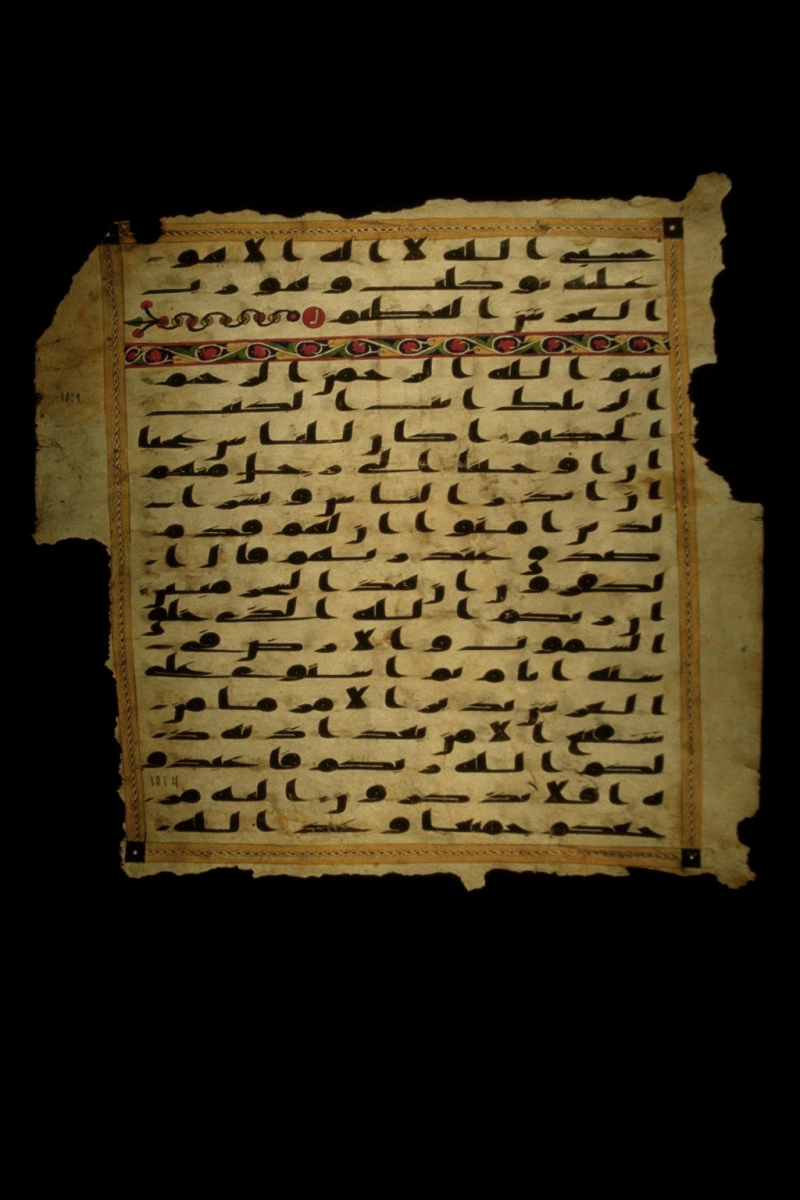 حسبي الله لا اله الا هو
عليه توكلت و هو رب
العرش العظيم
بسم الله الرحمن الرحيم
الر تلك ايت الكتب
الحكيم اكان للناس عجبا
ان اوحينا الى رجل منهم
10:1
ان انذر الناس و بشر ا
لذين امنوا ان لهم قدم
صدق عند ربهم قال ا
لكفرون ان هذا لسحر مبين
ان ربكم الله الذي خلق
السموت و الارض في
ستة ايام ثم استوى على
العرش يدبر الامر ما من
شفيع الا من بعد اذنه ذ
لكم الله ربكم فاعبدو
10:4
ه افلا تذكرون اليه مر
جعكم جميعا وعد الله